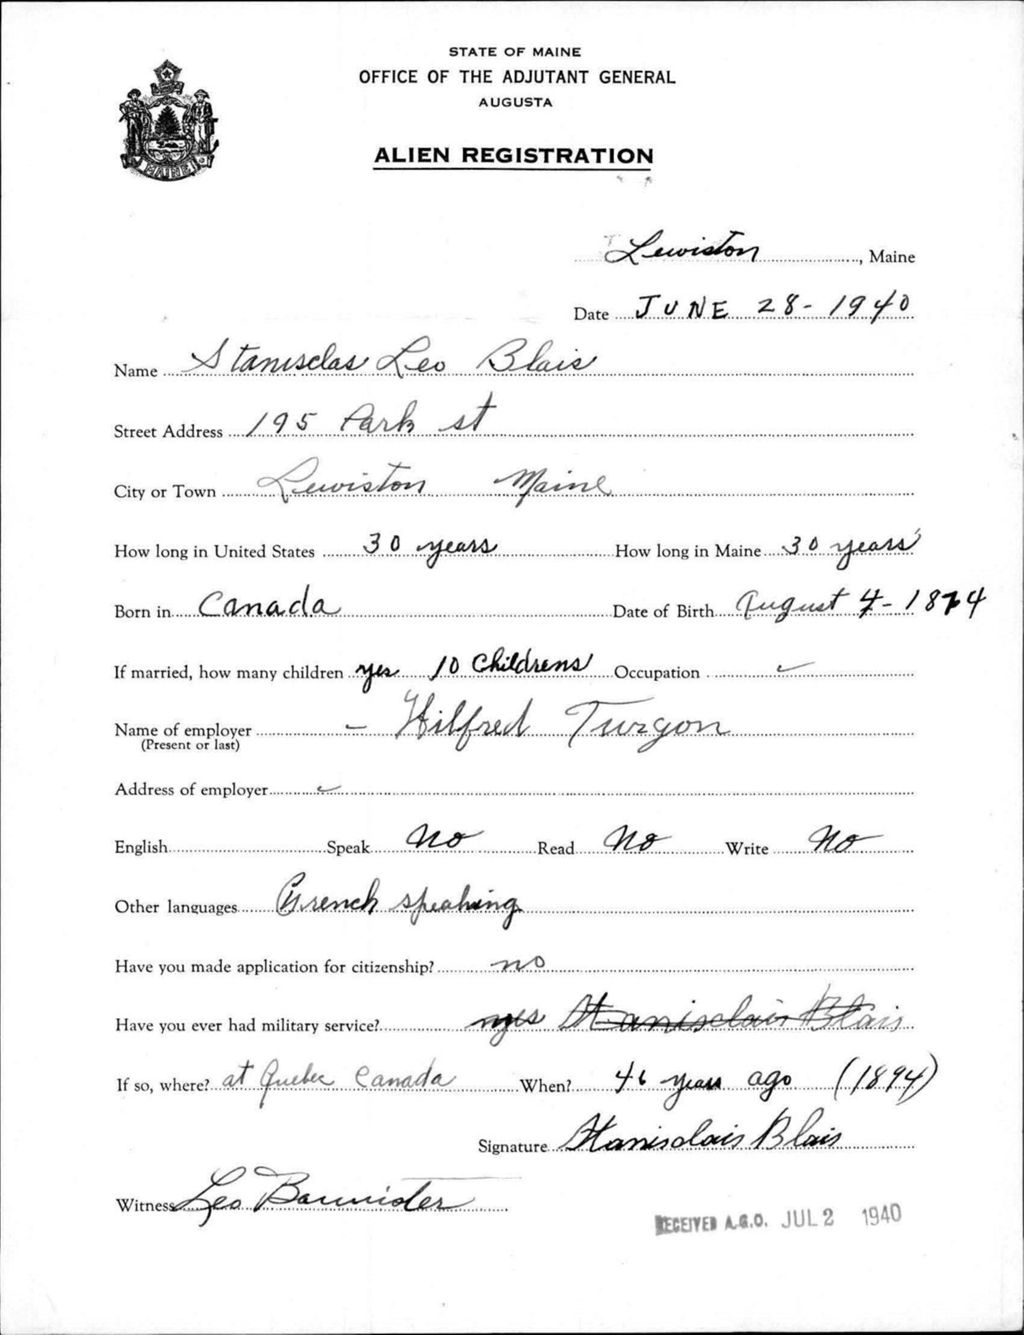 STATE OF MAINE
OFFICE OF THE ADJUTANT GENERAL
AUGUSTA
ALIEN REGISTRATION
Lewiston, Maine
Date JUNE 28 - 1940
Name Stanisclas Leo Blais
Street Address 195 Park st
City or Town Lewiston Maine
How long in United States 30 years How long in Maine 30 years
Born in Canada Date of Birth August 4 - 1874
If married, how many children yes 10 Childrens Occupation
Name of employer - Wilfred Turgon
(Present or last)
Address of employer
English Speak No Read No Write No
Other languages French speaking
Have you made application for citizenship? no
Have you ever had military service? yes Stanisclais Blais
If so, where? at Quebec Canada When? 46 years ago (1894)
Signature Stanisclais Blais
Witness Leo Bannister
RECEIVED A.G.O. JUL 2 1940
MAINE